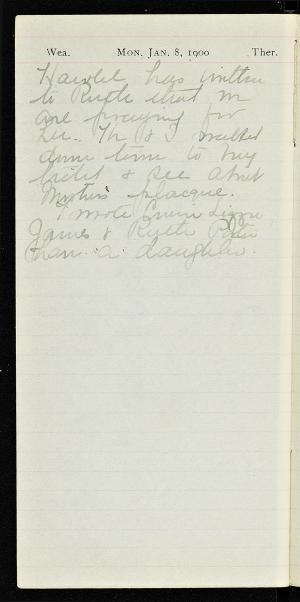 Wea. MON. JAN. 8, 1900 Ther.
Harold has written
to Ruth that we
are praying for
her. M & I walked
down town to buy
ticket & see about
Mother's placque.
I wrote Lizzie
James & Ruth
man a daughter.